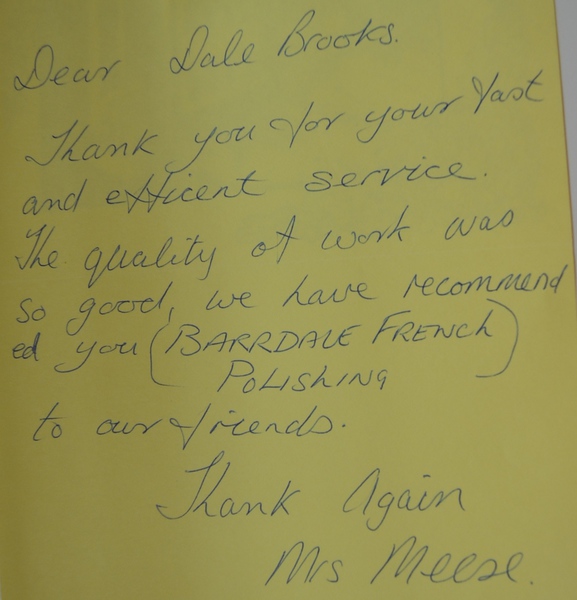 Dear Dale Brooks.
Thank you for your fast
and efficent service.
The quality of work was
so good, we have recommend
ed you (BARRDALE FRENCH
POLISHING)
to our friends.
Thank Again
Mrs Meese.